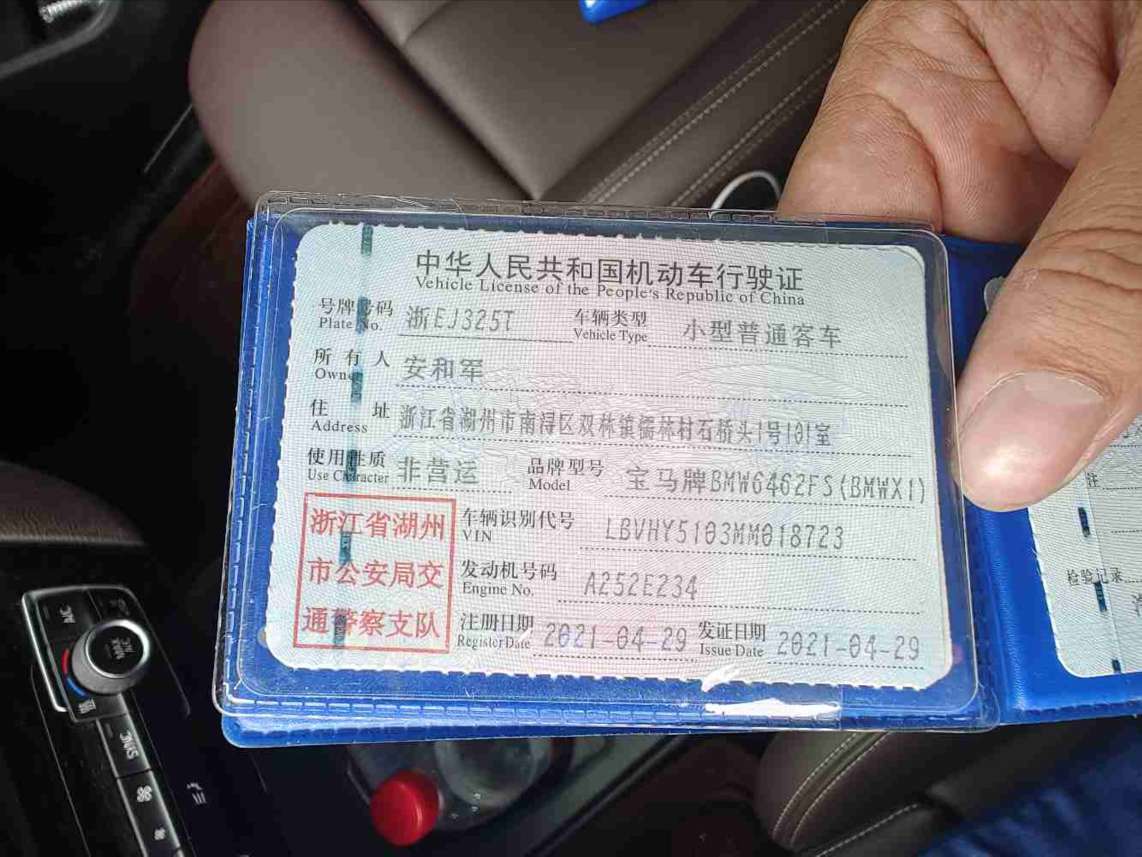 中华人民共和国机动车行驶证
Vehicle License of the People's Republic of China
号牌号码 浙EJ325T 车辆类型 小型普通客车
Plate No. Vehicle Type
所有人 安和军
Owner
住址 浙江省湖州市南浔区双林镇儒林村石桥头1号101室
Address
使用性质 非营运 品牌型号 宝马牌BMW6462FS(BMWX1)
Use Character Model
浙江省湖州
市公安局交
通警察支队
车辆识别代号 LBVHY5103MM018723
VIN
发动机号码 A252E234
Engine No.
注册日期 2021-04-29 发证日期 2021-04-29
Register Date Issue Date
注
检验记录
A/C
MAX
A/C
SYNC